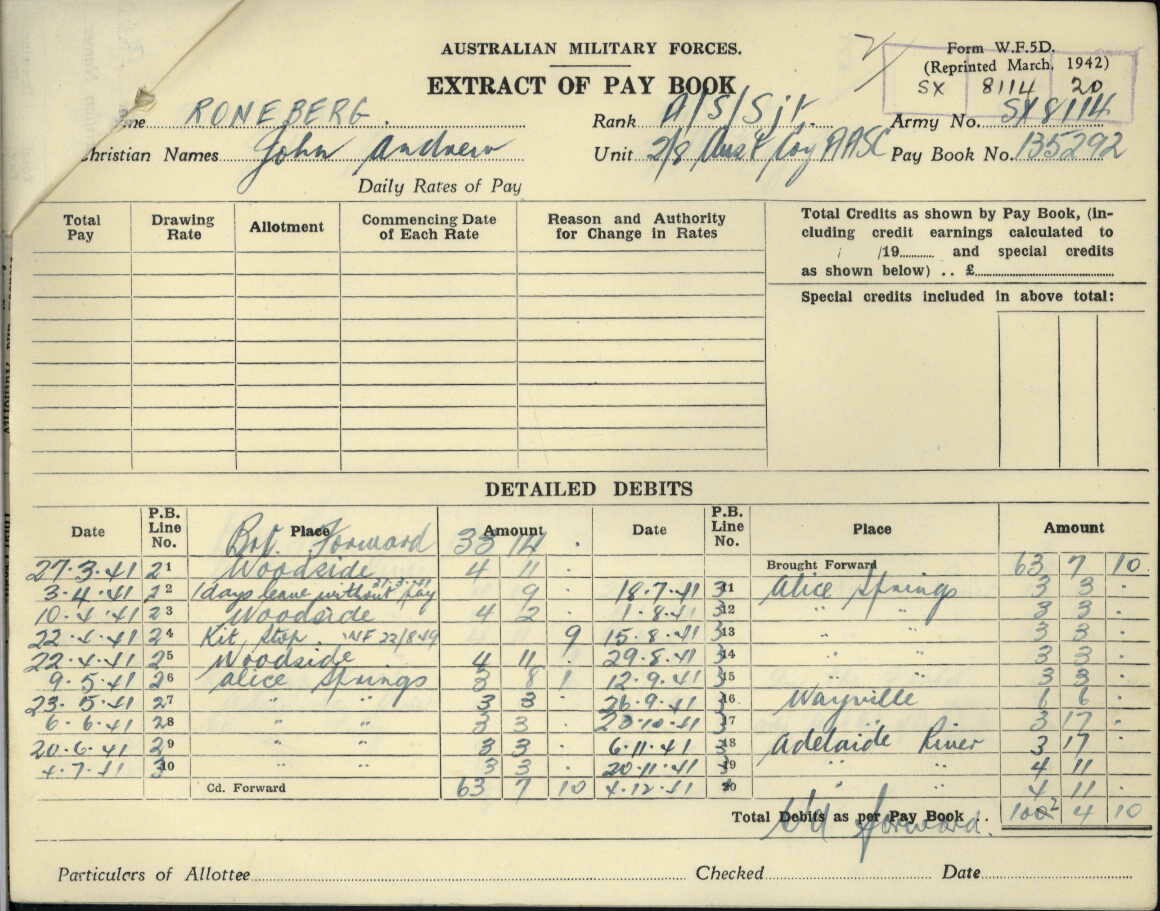 AUSTRALIAN MILITARY FORCES.
Form W.F.5D.
(Reprinted March, 1942)
EXTRACT OF PAY BOOK
SX 8114 20
me RONEBERG. Rank A/S/Sjt. Army No. SX8114
Christian Names John Andrew Unit 2/8 Aust Coy AASC Pay Book No. 135292
Daily Rates of Pay
Total Pay Drawing Rate Allotment Commencing Date of Each Rate Reason and Authority for Change in Rates
Total Credits as shown by Pay Book, (in-
cluding credit earnings calculated to
/ /19 and special credits
as shown below) .. £
Special credits included in above total:
DETAILED DEBITS
Date P.B. Line No. Place Amount Date P.B. Line No. Place Amount
Brt. Forward 33 14 .
27.3.41 21 Woodside 4 11 . Brought Forward 63 7 10
3.4.41 22 1 days leave without pay 27.3.41 9 . 18.7.41 31 Alice Springs 3 3 .
10.4.41 23 Woodside 4 2 . 1.8.41 32 " " 3 3 .
22.4.41 24 Kit Stop. WF 22/849 9 15.8.41 33 " " 3 3 .
22.4.41 25 Woodside 4 11 . 29.8.41 34 " " 3 3 .
9.5.41 26 Alice Springs 3 8 1 12.9.41 35 " " 3 3 .
23.5.41 27 " " 3 3 . 26.9.41 36 Wayville 6 6 .
6.6.41 28 " " 3 3 . 23.10.41 37 " 3 17 .
20.6.41 29 " " 3 3 . 6.11.41 38 Adelaide River 3 17 .
4.7.41 30 " " 3 3 . 20.11.41 39 " " 4 11 .
Cd. Forward 63 7 10 4.12.41 " " 4 11 .
Total Debits as per Pay Book .. 102 4 10
c/d forward.
Particulars of Allottee Checked Date